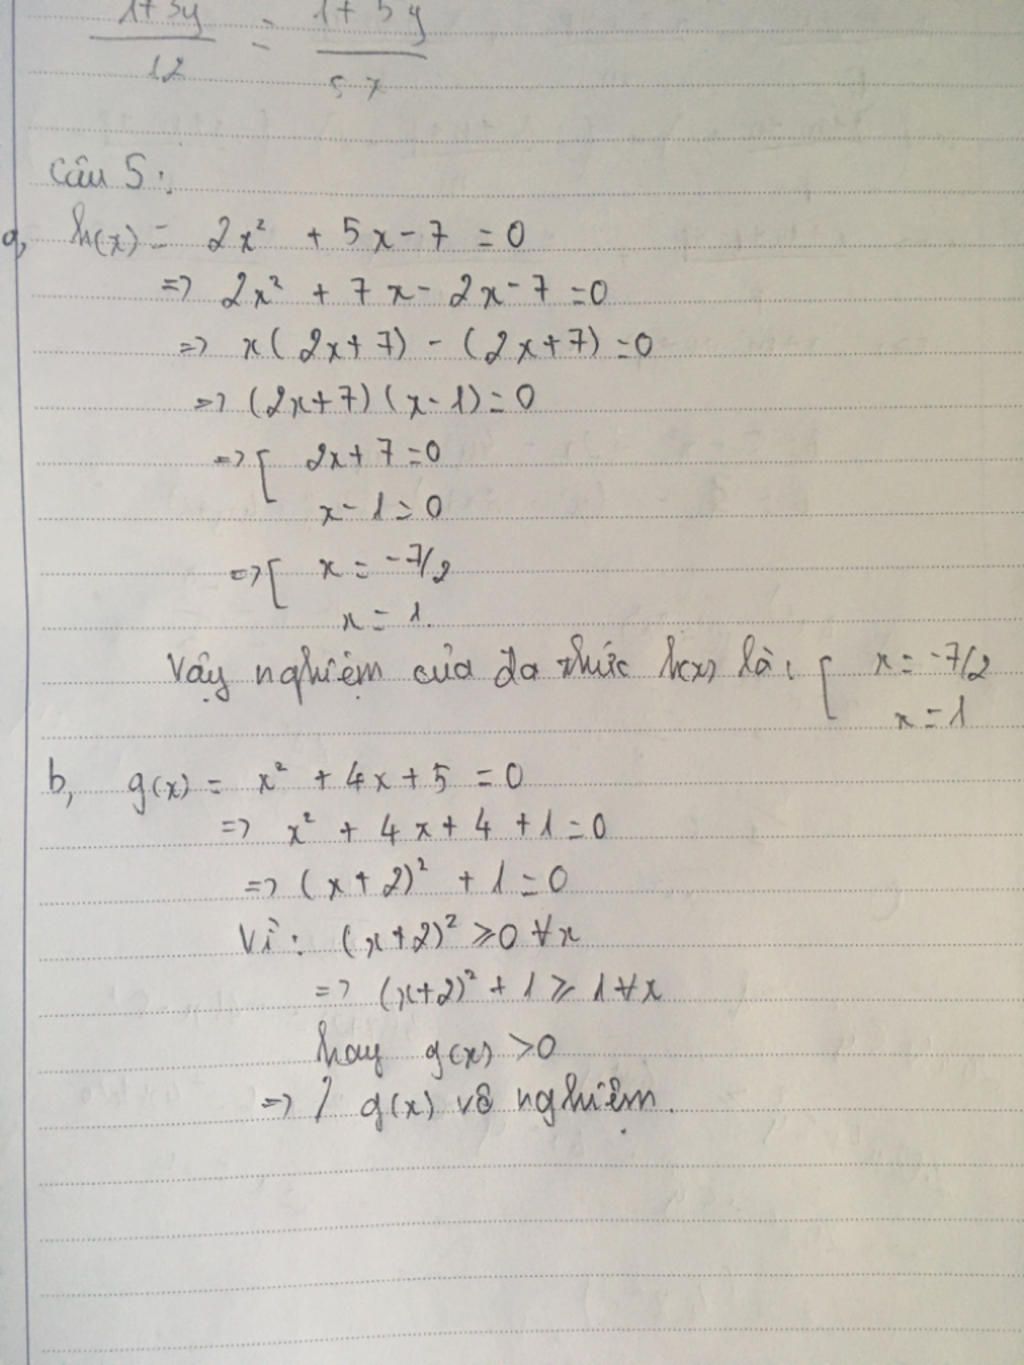 1+3y/12 = 1+5y/5x
Câu 5:
a, h(x) = 2x² + 5x - 7 = 0
=> 2x² + 7x - 2x - 7 = 0
=> x(2x+7) - (2x+7) = 0
=> (2x+7)(x-1) = 0
=> [ 2x+7 = 0
x - 1 = 0
=> [ x = -7/2
x = 1.
Vậy nghiệm của đa thức h(x) là: [ x = -7/2
x = 1
b, g(x) = x² + 4x + 5 = 0
=> x² + 4x + 4 + 1 = 0
=> (x+2)² + 1 = 0
Vì: (x+2)² ≥ 0 ∀x
=> (x+2)² + 1 ≥ 1 ∀x
hay g(x) > 0
=> g(x) vô nghiệm.